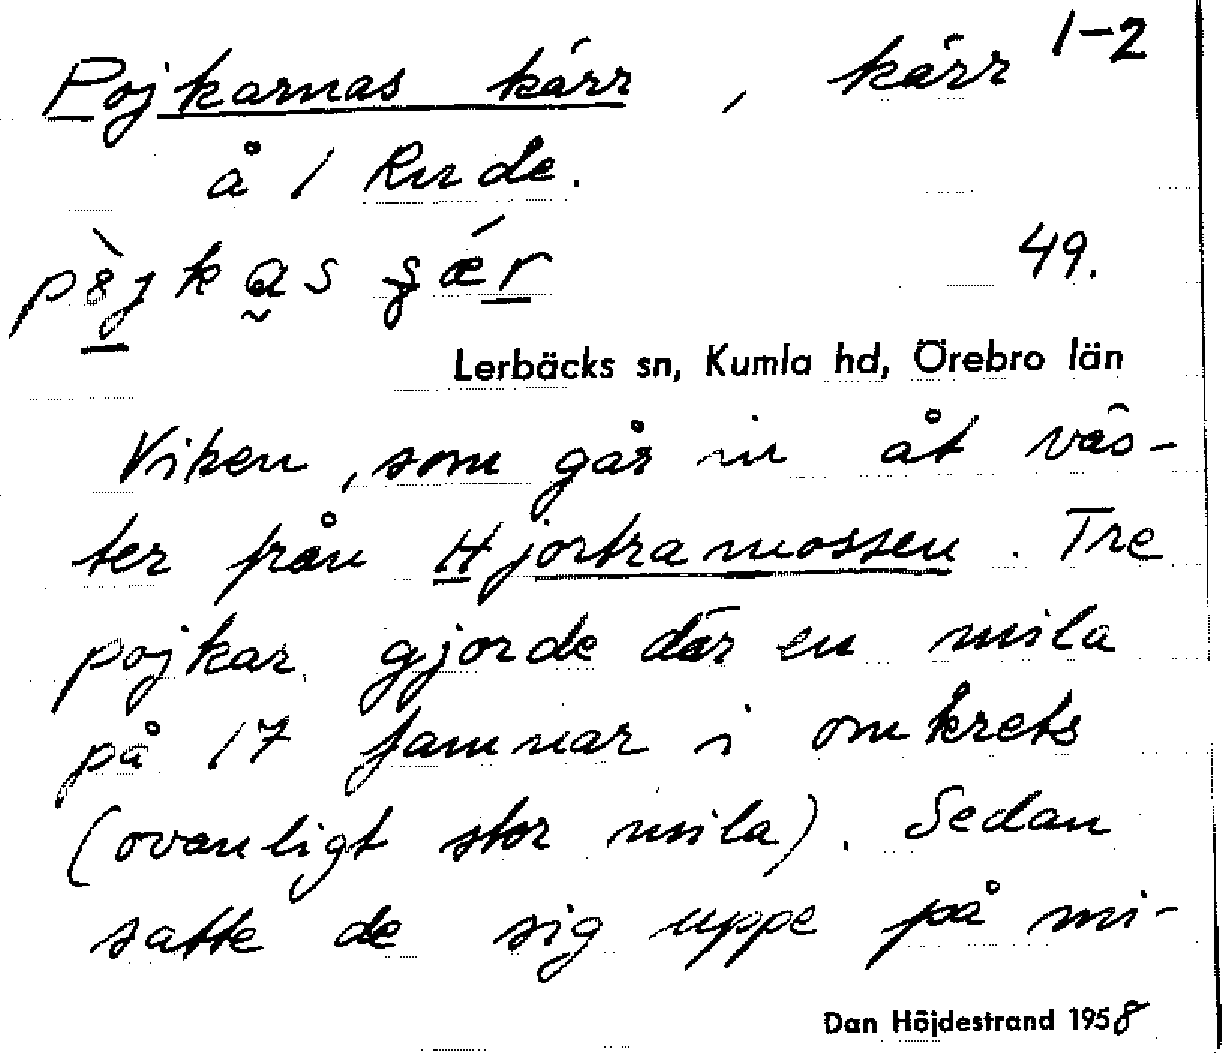 Pojkarnas kärr, kärr 1-2
å 1 Rude.
49.
Lerbäcks sn, Kumla hd, Örebro län
Viken, som går in åt väs-
ter från Hjortramossen. Tre
pojkar gjorde där en mila
på 17 famnar i omkrets
(ovanligt stor mila). Sedan
satte de sig uppe på mi-
Dan Höjdestrand 1958